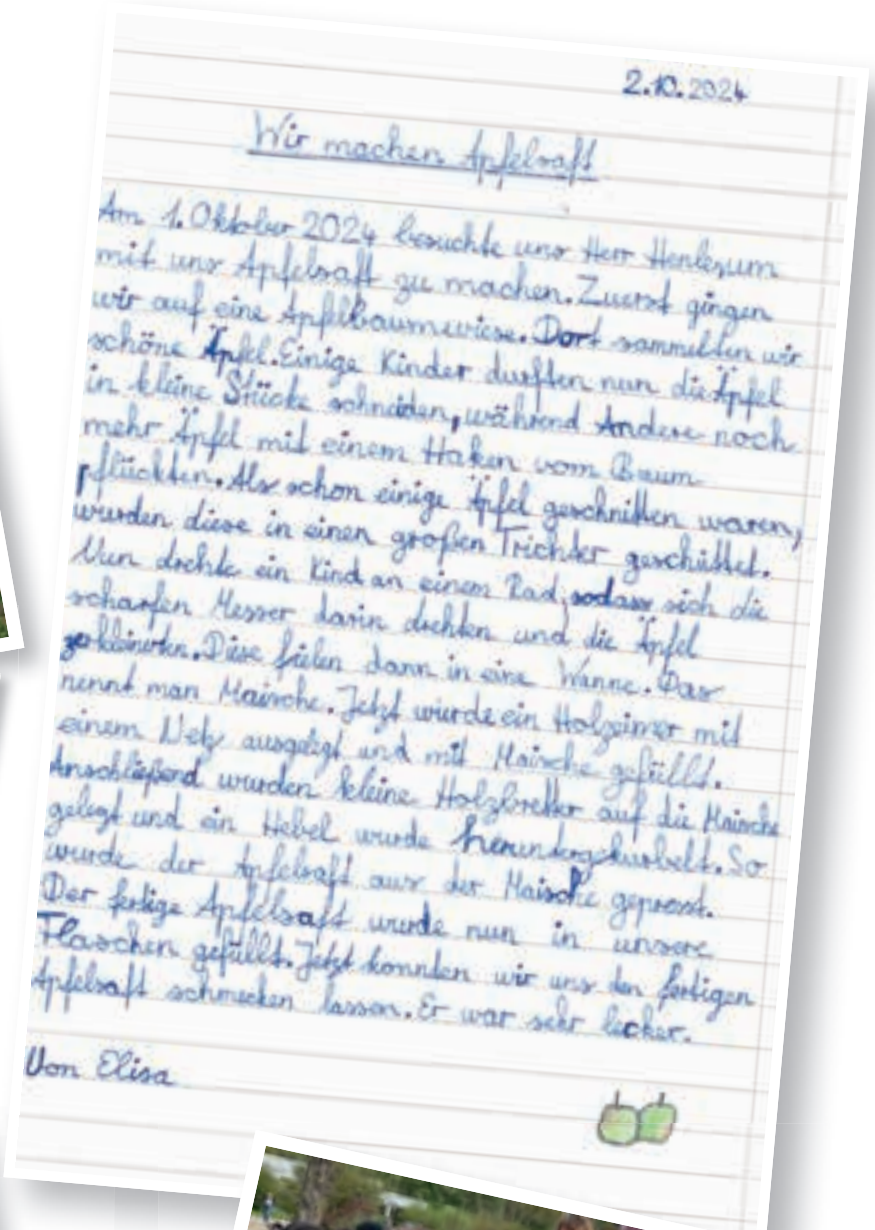 2.10.2024
Wir machen Apfelsaft
Am 1. Oktober 2024 besuchte uns Herr um
mit uns Apfelsaft zu machen. Zuerst gingen
wir auf eine Apfelbaumwiese. Dort sammelten wir
schöne Äpfel. Einige Kinder durften nun die Äpfel
in kleine Stücke schneiden, während Andere noch
mehr Äpfel mit einem Haken vom Baum
pflückten. Als schon einige Äpfel geschnitten waren,
wurden diese in einen großen Trichter geschüttet.
Nun drehte ein Kind an einem Rad, sodass sich die
scharfen Messer darin drehten und die Äpfel
zerkleinerten. Diese fielen dann in eine Wanne. Das
nennt man Maische. Jetzt wurde ein Holzeimer mit
einem Netz ausgelegt und mit Maische gefüllt.
Anschließend wurden kleine Holzbretter auf die Maische
gelegt und ein Hebel wurde heruntergekurbelt. So
wurde der Apfelsaft aus der Maische gepresst.
Der fertige Apfelsaft wurde nun in unsere
Flaschen gefüllt. Jetzt konnten wir uns den fertigen
Apfelsaft schmecken lassen. Er war sehr lecker.
Von Elisa